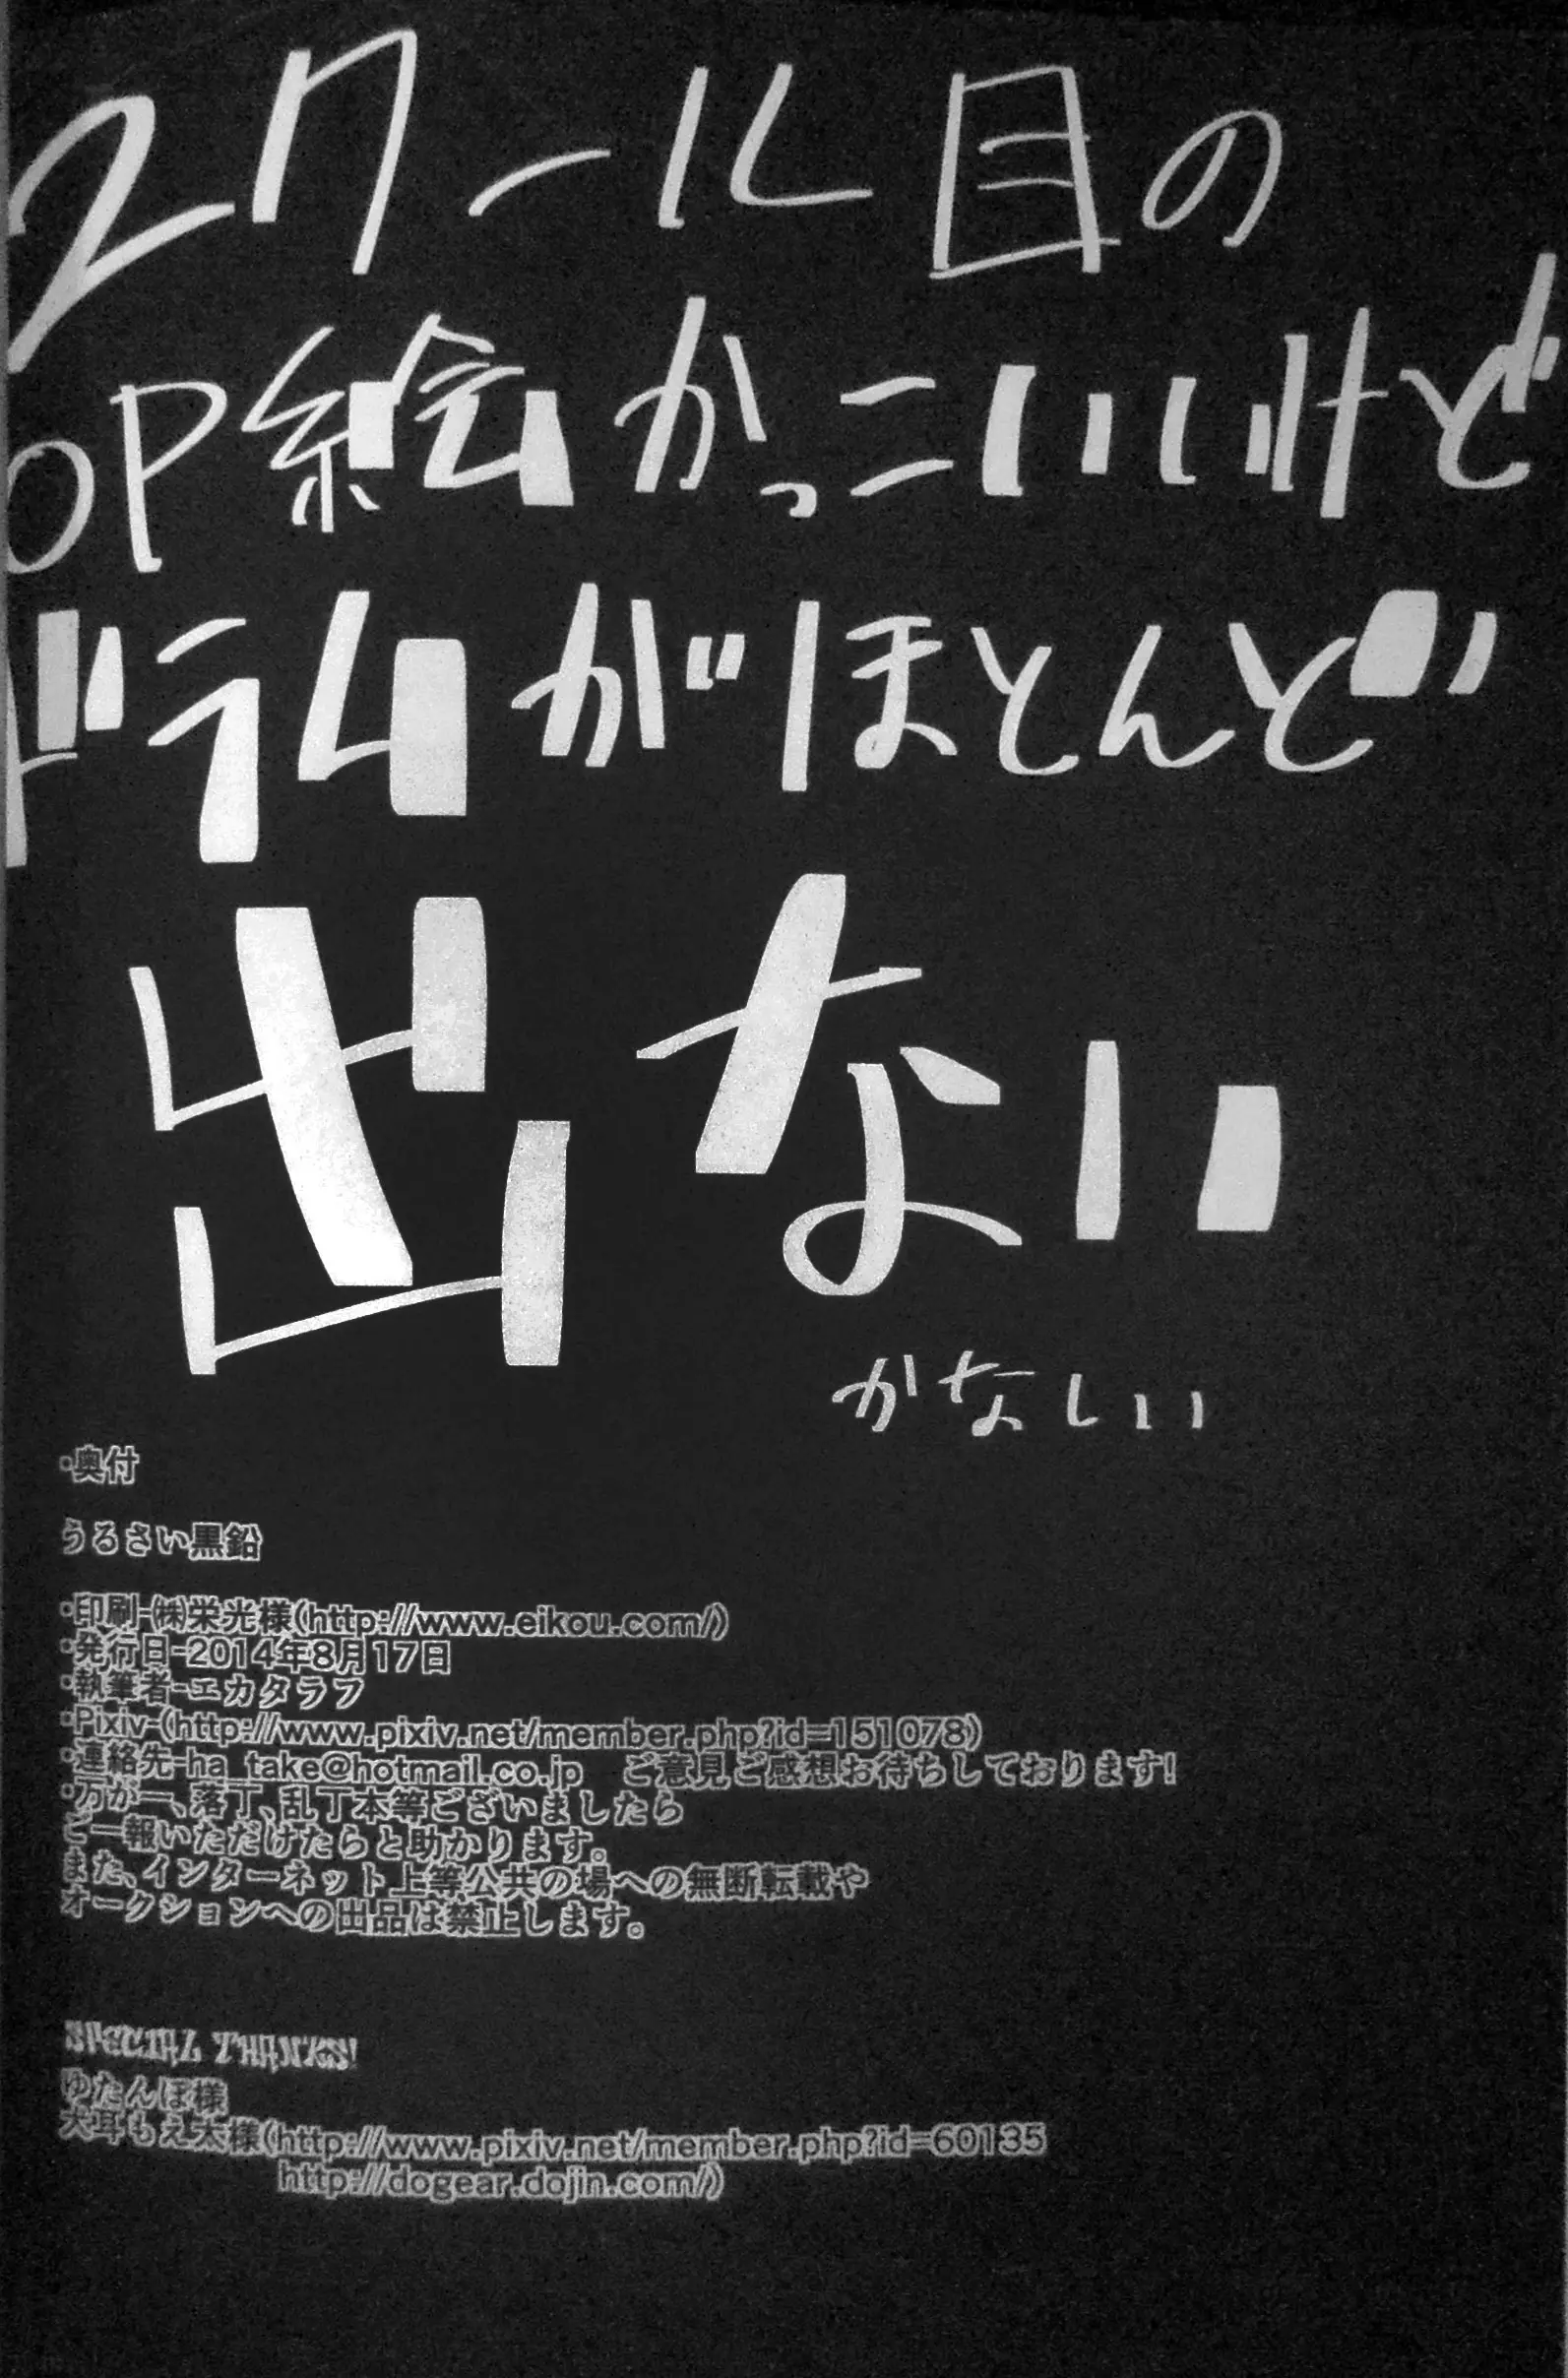 2クール目の
OP絵かっこいいけど
ドラムがほとんど
出ない
かなしい
・奥付
うるさい黒鉛
・印刷-㈱栄光様(http://www.eikou.com/)
・発行日-2014年8月17日
・執筆者-エカタラフ
・Pixiv-(http://www.pixiv.net/member.php?id=151078)
・連絡先-ha_take@hotmail.co.jp　ご意見ご感想お待ちしております!
・万が一、落丁、乱丁本等ございましたら
ご一報いただけたらと助かります。
また、インターネット上等公共の場への無断転載や
オークションへの出品は禁止します。
SPECIAL THANKS!
ゆたんぽ様
犬耳もえ太様(http://www.pixiv.net/member.php?id=60135
http://dogear.dojin.com/)